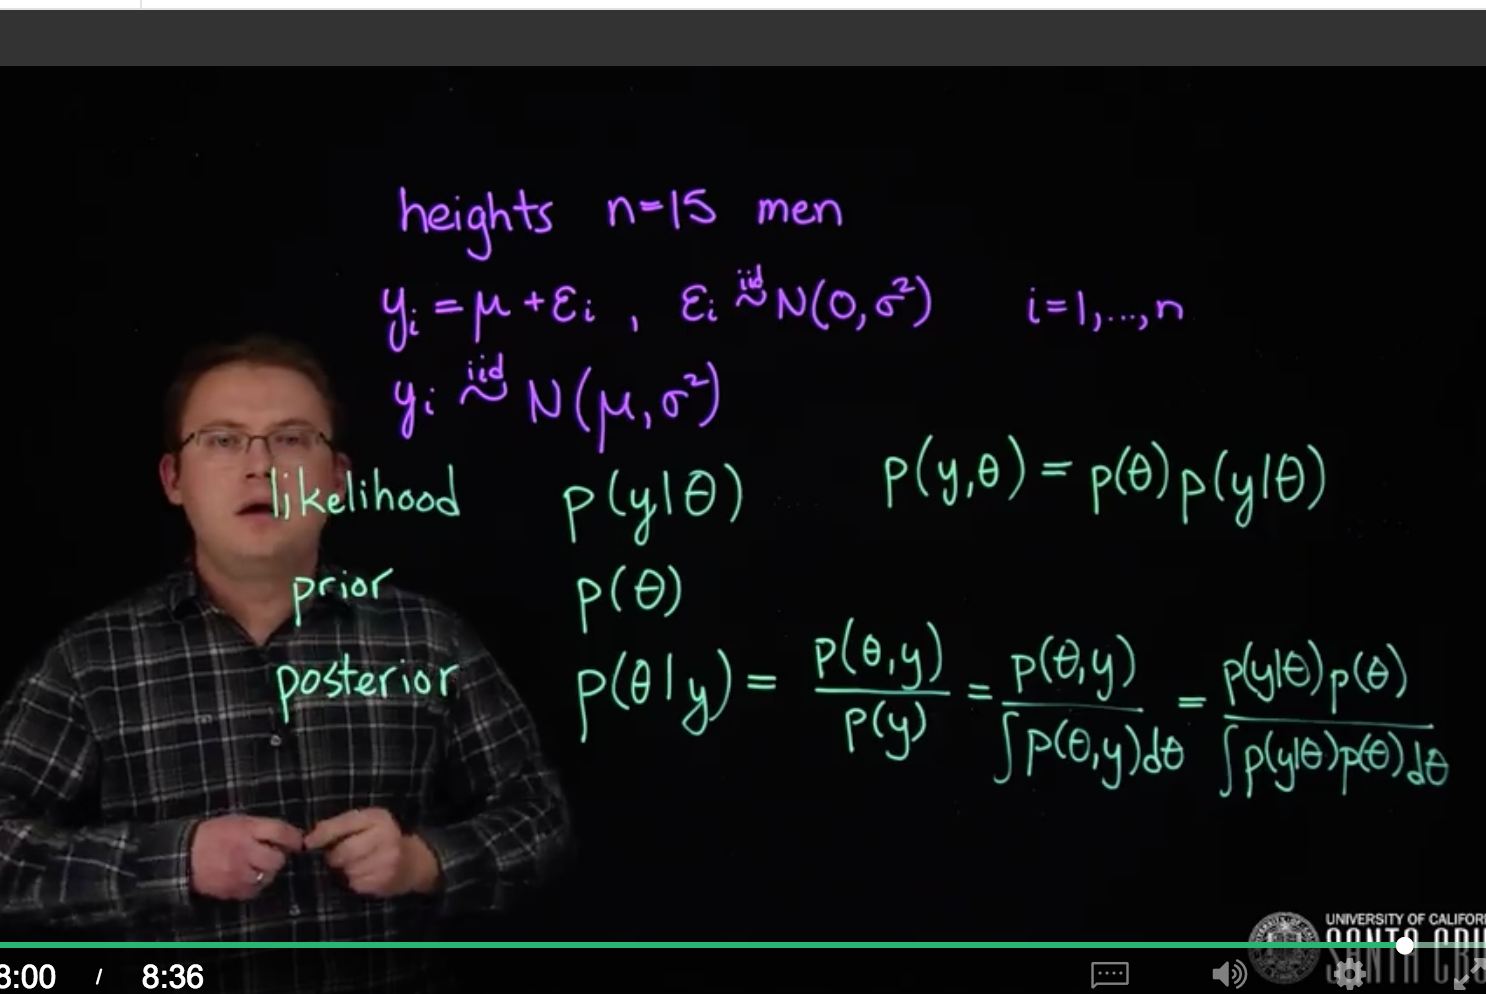 heights n=15 men
yᵢ = μ + εᵢ , εᵢ iid~ N(0, σ²) i=1,...,n
yᵢ iid~ N(μ, σ²)
likelihood p(y|θ) p(y,θ) = p(θ) p(y|θ)
prior p(θ)
posterior p(θ|y) = p(θ,y) / p(y) = p(θ,y) / ∫p(θ,y)dθ = p(y|θ)p(θ) / ∫p(y|θ)p(θ)dθ
UNIVERSITY OF CALIFOR
SANTA CRU
8:00 / 8:36